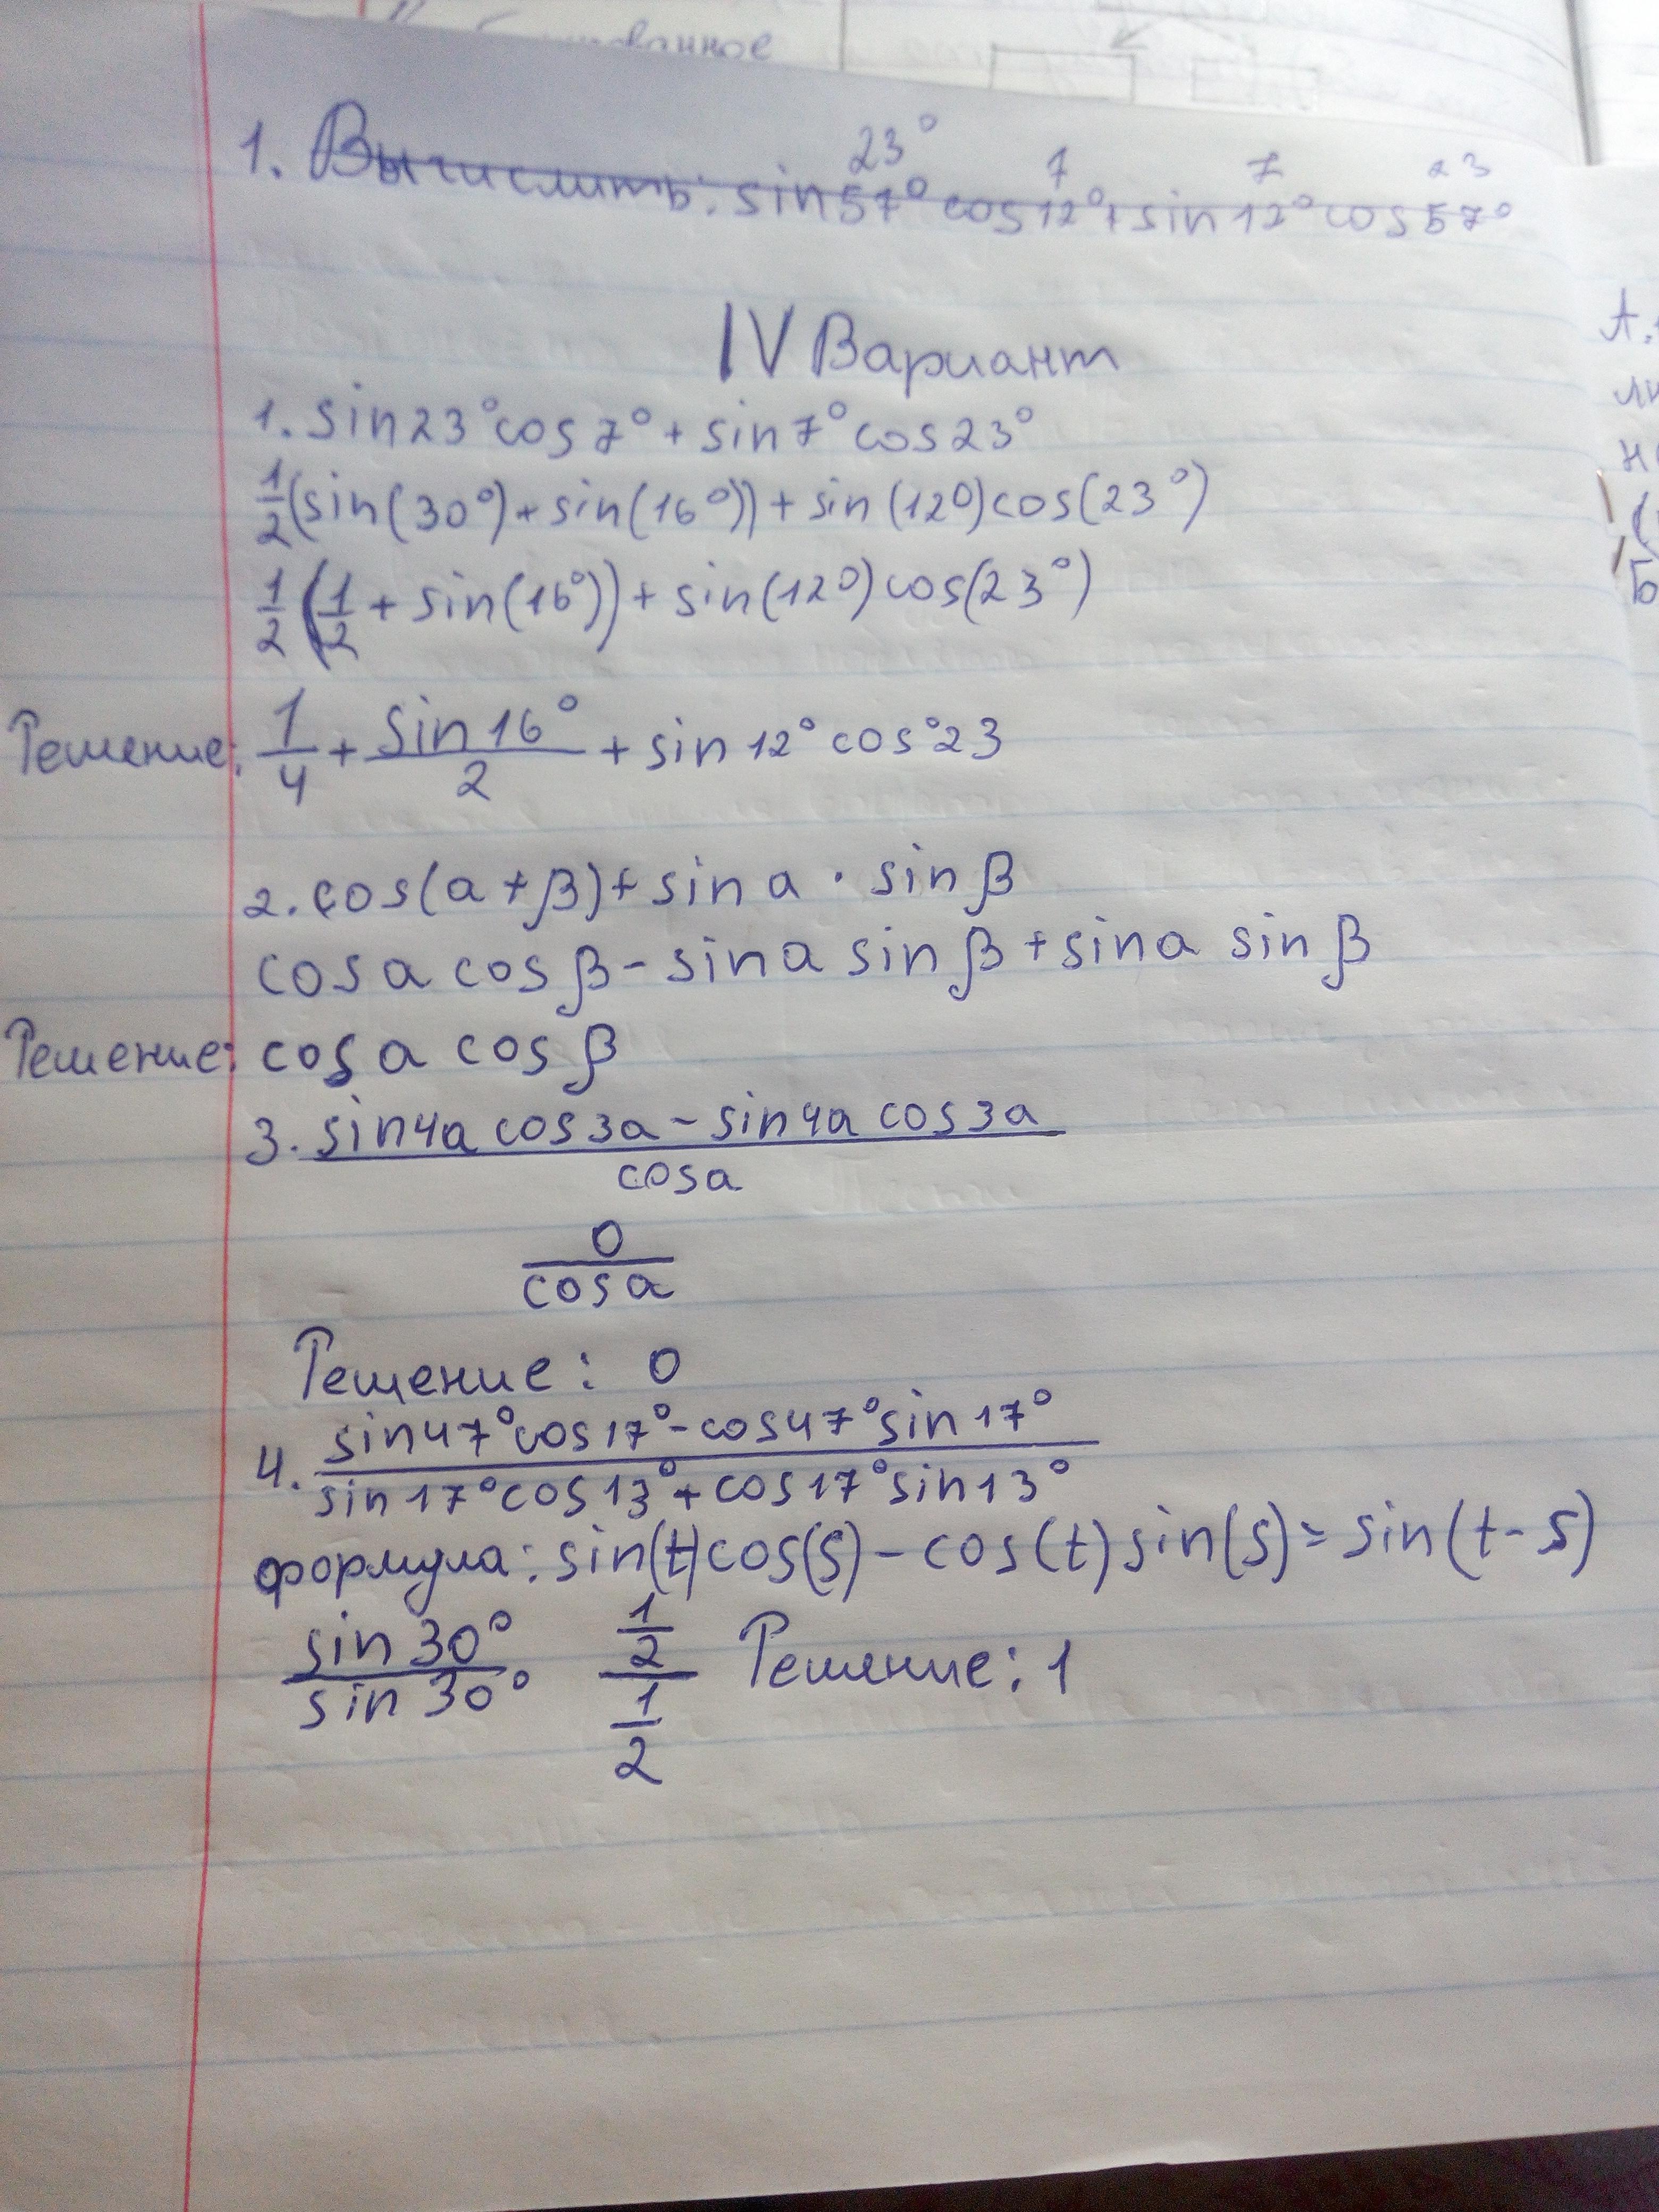 ованное
23° 7 7 23
1. Вычислить: sin57° cos12°+sin12°cos57°
IV Вариант
1. sin23°cos7°+sin7°cos23°
1/2(sin(30°)+sin(16°))+sin(12°)cos(23°)
1/2(1/2+sin(16°))+sin(12°)cos(23°)
Решение: 1/4+sin16°/2+sin12°cos°23
2. cos(a+β)+sin a · sin β
cos a cos β-sin a sin β+sin a sin β
Решение: cos a cos β
3. sin4a cos3a-sin4a cos3a
cosa
0
cosa
Решение: 0
4. sin47°cos17°-cos47°sin17°
sin17°cos13°+cos17°sin13°
формула: sin(t)cos(s)-cos(t)sin(s)=sin(t-s)
sin30°/sin30° 1/2/1/2 Решение: 1
А.
ли
н
(
Б